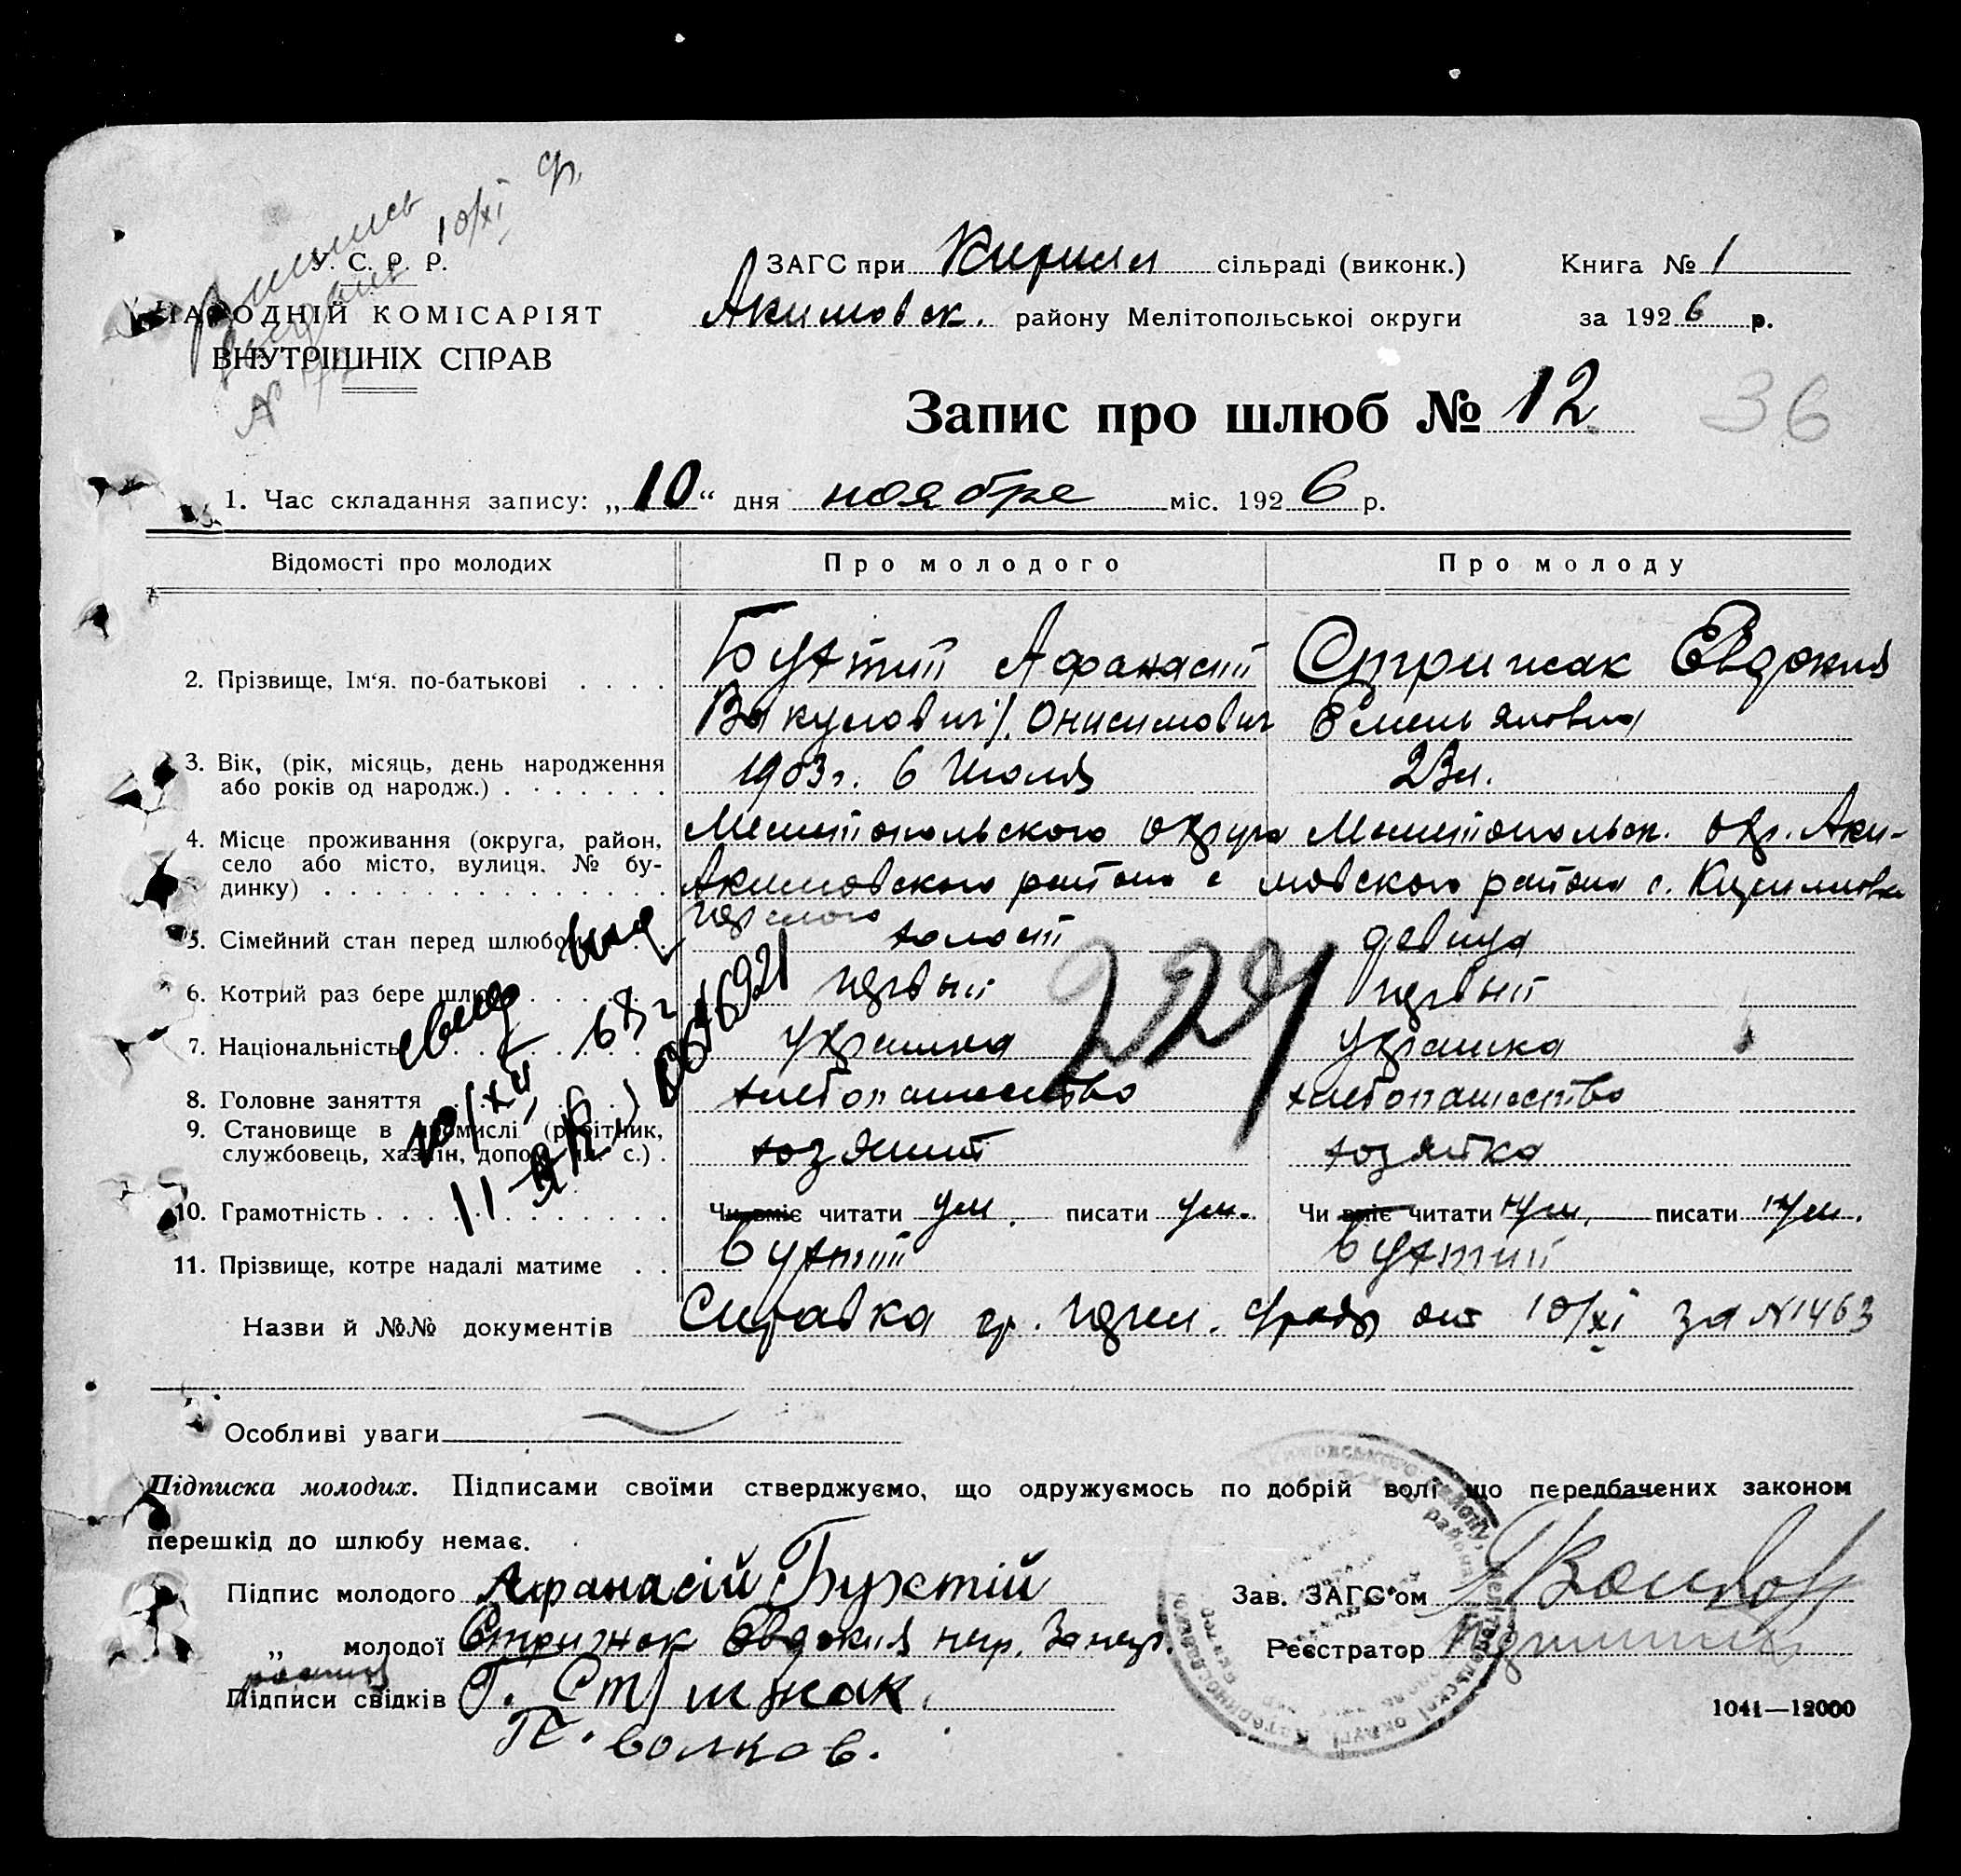 10/XI
У. С. Р. Р.
НАРОДНІЙ КОМІСАРІЯТ
ВНУТРІШНІХ СПРАВ
ЗАГС при Кирилл сільраді (виконк.) Книга № 1
Акимовск. району Мелітопольської округи за 1926 р.
Запис про шлюб № 12
36
1. Час складання запису: „10“ дня ноября міс. 1926 р.
Відомості про молодих Про молодого Про молоду
2. Прізвище, Ім'я, по-батькові Бухтий Афанасий Стрижак Евдокия
Вакулович/Онисимович Емельяновна
3. Вік, (рік, місяць, день народження 1903 г. 6 Июля 23 л.
або років од народж.)
4. Місце проживання (округа, район, Мелитопольского округа Мелитопольск. окр. Аки-
село або місто, вулиця, № бу- Акимовского района с мовского района с. Кирилловка
динку)
5. Сімейний стан перед шлюбом холост девица
6. Котрий раз бере шлюб первый первый
7. Національність украинка украинка
8. Головне заняття хлебопашество хлебопашество
9. Становище в промислі (робітник, хозяин хозяйка
службовець, хазяїн, допом. чл. с.)
10. Грамотність Чи вміє читати ум. писати ум. Чи вміє читати н/ум. писати н/ум.
11. Прізвище, котре надалі матиме Бухтий Бухтий
229
Назви й №№ документів Справка от 10/XI за N1463
Особливі уваги
Підписка молодих. Підписами своїми стверджуємо, що одружуємось по добрій волі що передбачених законом
перешкід до шлюбу немає.
Підпис молодого Афанасій Бухтій Зав. ЗАГС'ом
„ молодої Стрижак Евдокия негр. За нецю. Реєстратор
Підписи свідків Г. Стрижак.
1041—12000
П. Волков.